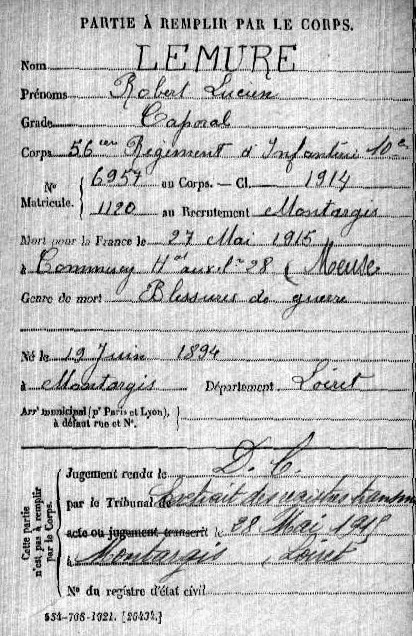 PARTIE À REMPLIR PAR LE CORPS.
Nom LEMURE
Prénoms Robert Lucien
Grade Caporal
Corps 56 Régiment d'Infanterie 10e
N° Matricule. { 6957 au Corps. — Cl. 1914
1120 au Recrutement Montargis
Mort pour la France le 27 Mai 1915
à Commercy (Meuse
Genre de mort Blessures de guerre
Né le 19 Juin 1894
à Montargis Département Loiret
Arrt municipal (pr Paris et Lyon),
à défaut rue et N°.
Cette partie n'est pas à remplir par le Corps.
Jugement rendu le D. C.
par le Tribunal de Extrait des registres
acte ou jugement transcrit le 28 Mai 1915
à Montargis Loiret
N° du registre d'état civil
534-708-1921. [26434.]